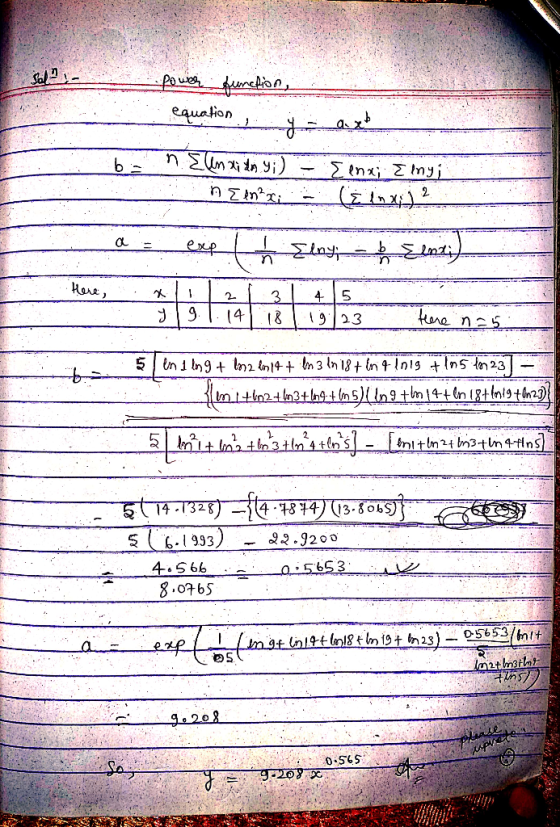 Solⁿ :- power function,
equation, y = a.x^b
b = n Σ(ln xi ln yi) - Σ ln xi Σ ln yi
n Σ ln²xi - (Σ ln xi)²
a = exp ( 1/n Σ ln yi - b/n Σ ln xi )
Here, x | 1 | 2 | 3 | 4 | 5
y | 9 | 14 | 18 | 19 | 23 Here n=5
b = 5 [ ln 1 ln 9 + ln 2 ln 14 + ln 3 ln 18 + ln 4 ln 19 + ln 5 ln 23 ] -
{(ln 1 + ln 2 + ln 3 + ln 4 + ln 5) ( ln 9 + ln 14 + ln 18 + ln 19 + ln 23)}
5 [ ln²1 + ln²2 + ln²3 + ln²4 + ln²5 ] - [ ln 1 + ln 2 + ln 3 + ln 4 + ln 5 ]
= 5 ( 14.1328) - {(4.7874) (13.8065)}
5 ( 6.1993) - 22.9200
= 4.566 = 0.5653
8.0765
a = exp ( 1/5 ( ln 9 + ln 14 + ln 18 + ln 19 + ln 23) - 0.5653/5 ( ln 1 +
ln 2 + ln 3 + ln 4
+ ln 5))
= 9.208
please
upvote
So, y = 9.208 x^0.565 Ans